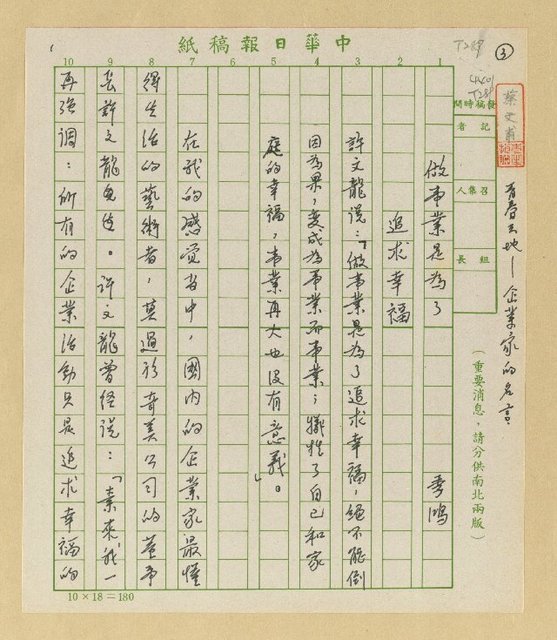 中華日報稿紙
③
T288
蔡文甫
發稿時間
記者
召集人
組長
青春天地—企業家的名言
（重要消息，請分供南北兩版）
1 2 3 4 5 6 7 8 9 10
做事業是為了
追求幸福
季鴻
許文龍說：「做事業是為了追求幸福，絕不能倒
因為果，變成為事業而事業；犧牲了自己和家
庭的幸福，事業再大也沒有意義。」
在我的感覺當中，國內的企業家最懂
得生活的藝術者，莫過於奇美公司的董事
長許文龍先生。許文龍曾經說：「素來，我一
再強調：所有的企業活動只是追求幸福的
10×18=180